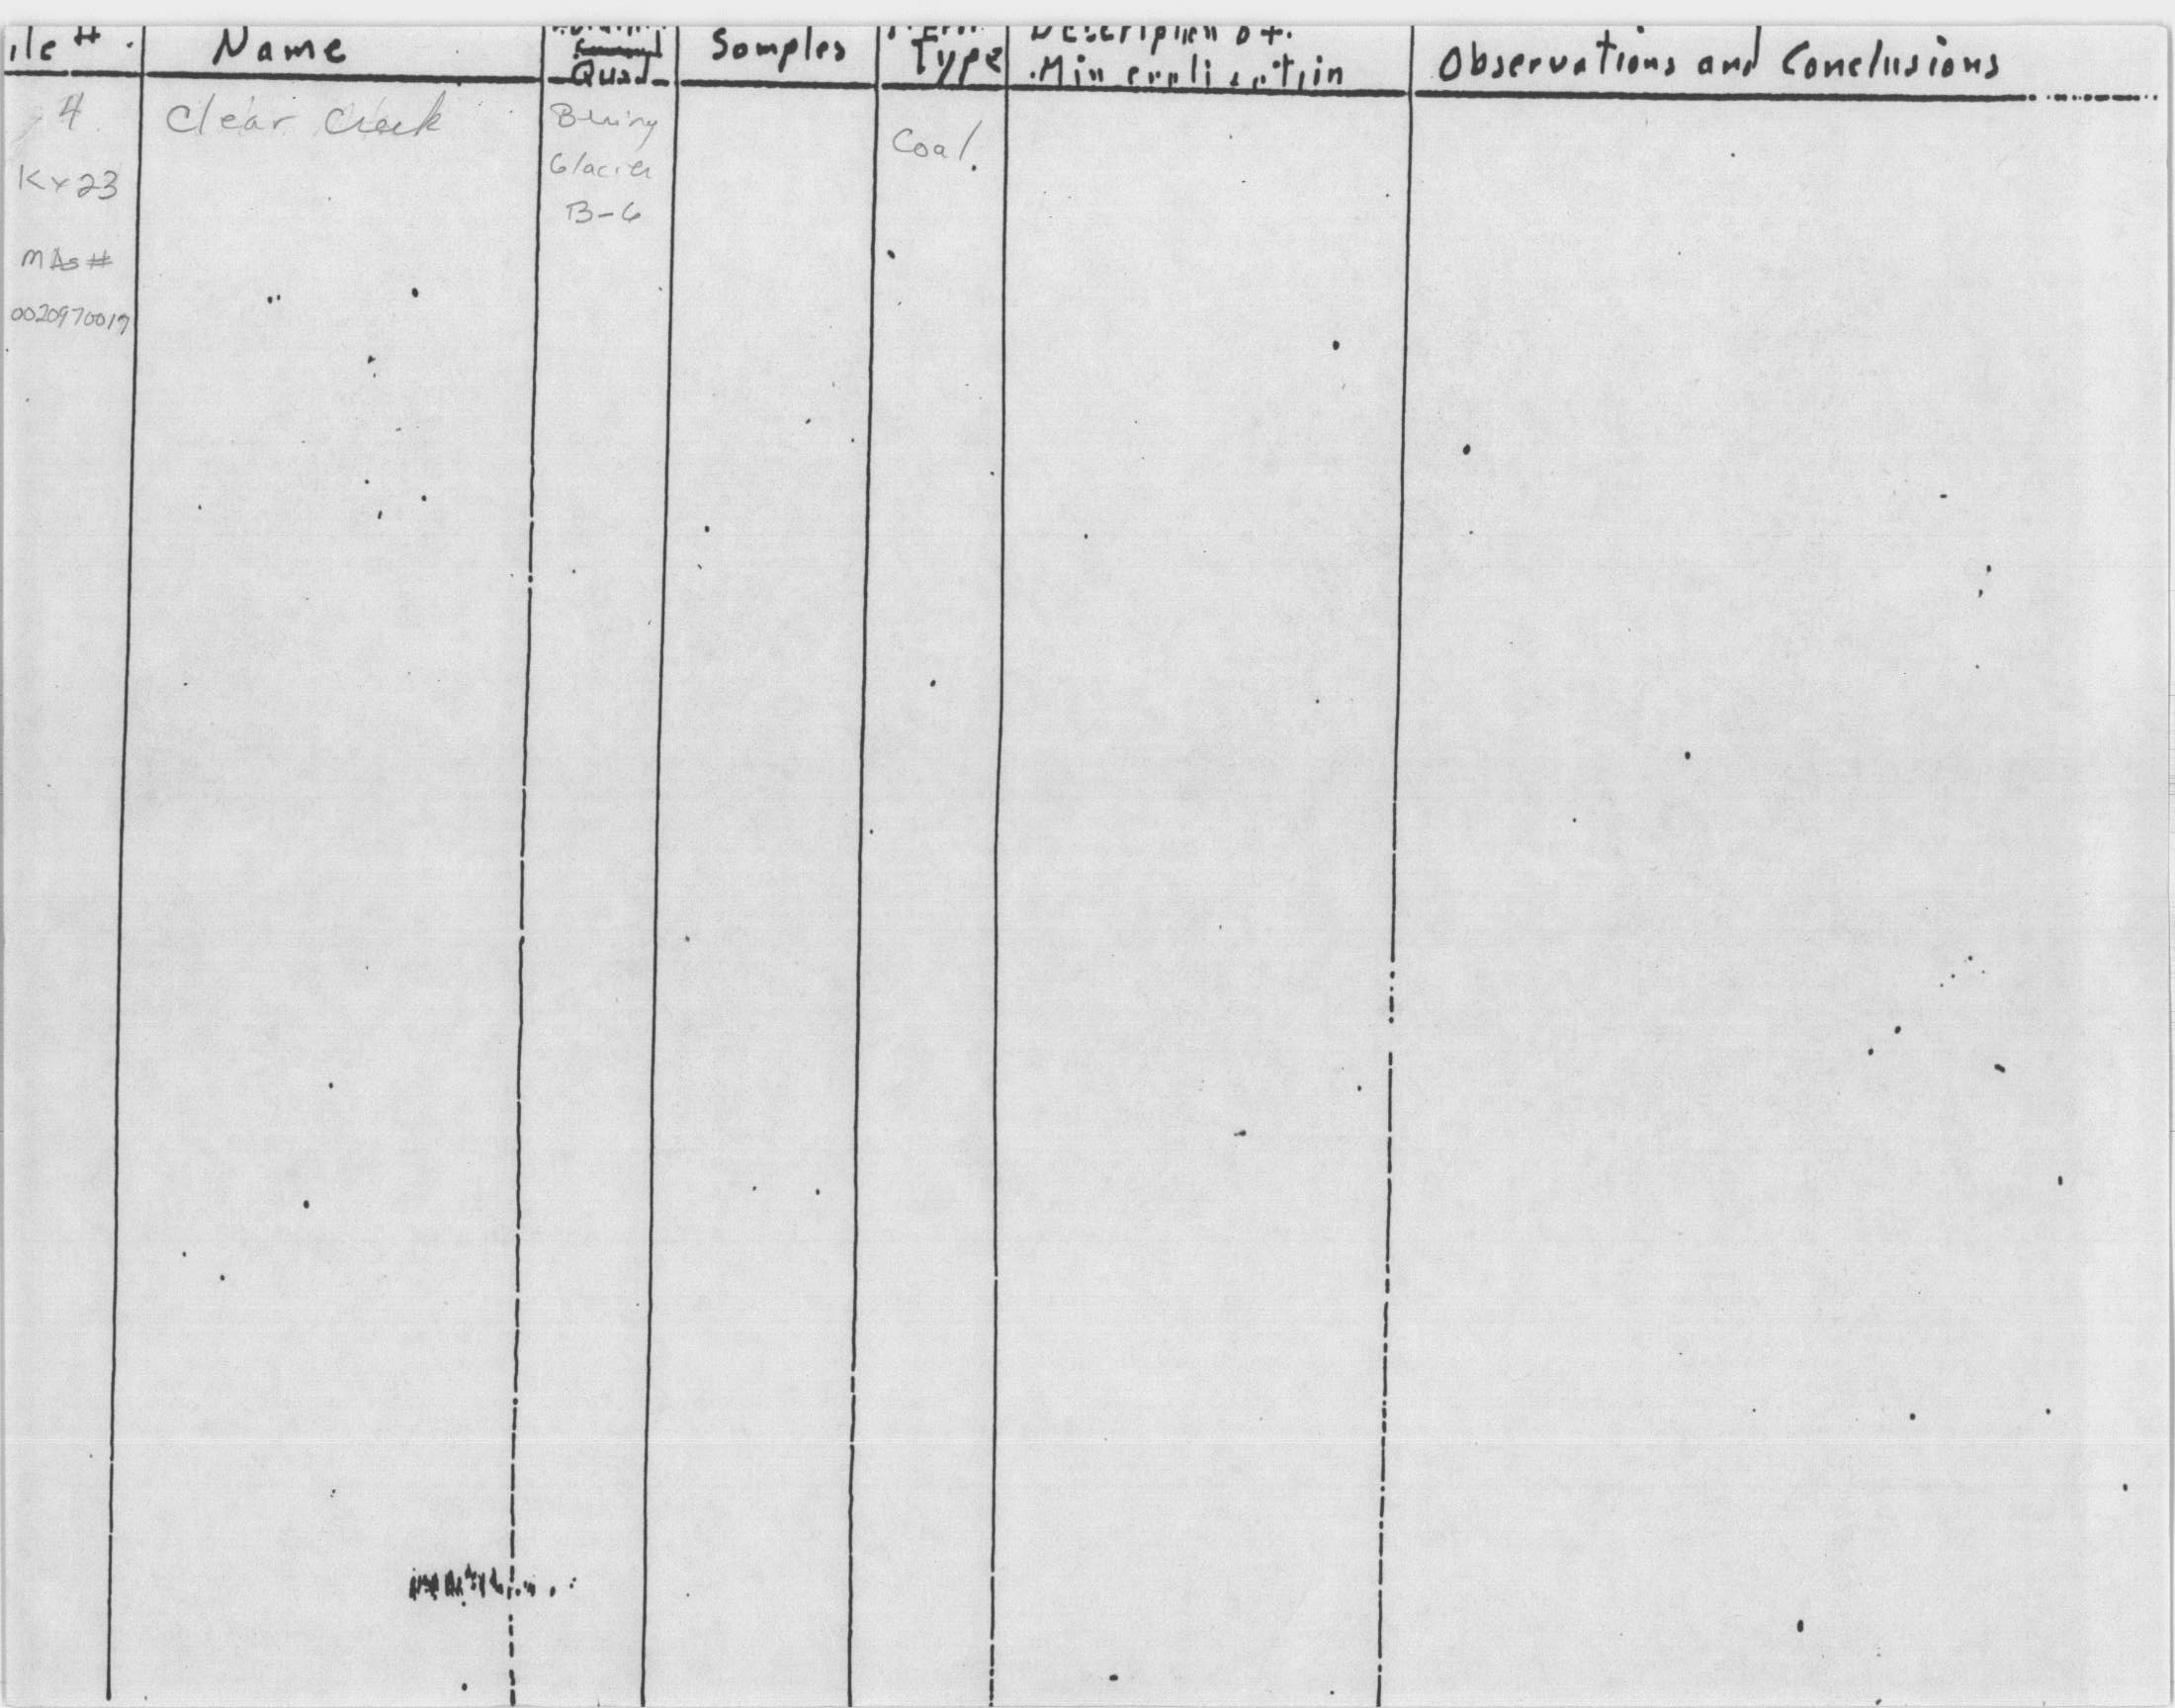 ile # Name Quad Samples Type Description of Mineralization Observations and Conclusions
4 Clear Creek Bering Coal.
Kx23 Glacier
B-6
MAS#
0020970019